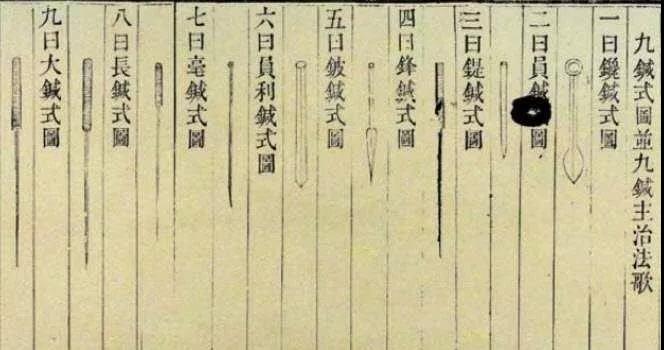 九鍼式圖並九鍼主治法歌
一曰鑱鍼式圖
二曰員鍼 圖
三曰鍉鍼式圖
四曰鋒鍼式圖
五曰鈹鍼式圖
六曰員利鍼式圖
七曰毫鍼式圖
八曰長鍼式圖
九曰大鍼式圖